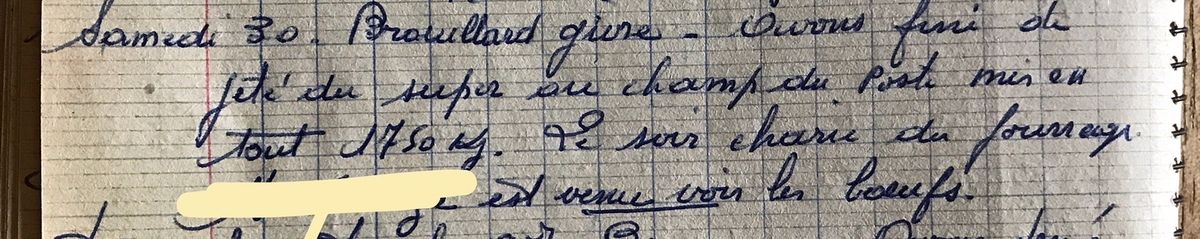 Samedi 30. Brouillard givre - Avons fini de
jeté du super au champ du Poste mis en
tout 1750 kg. Le soir charié du fourrage.
est venu voir les boeufs.